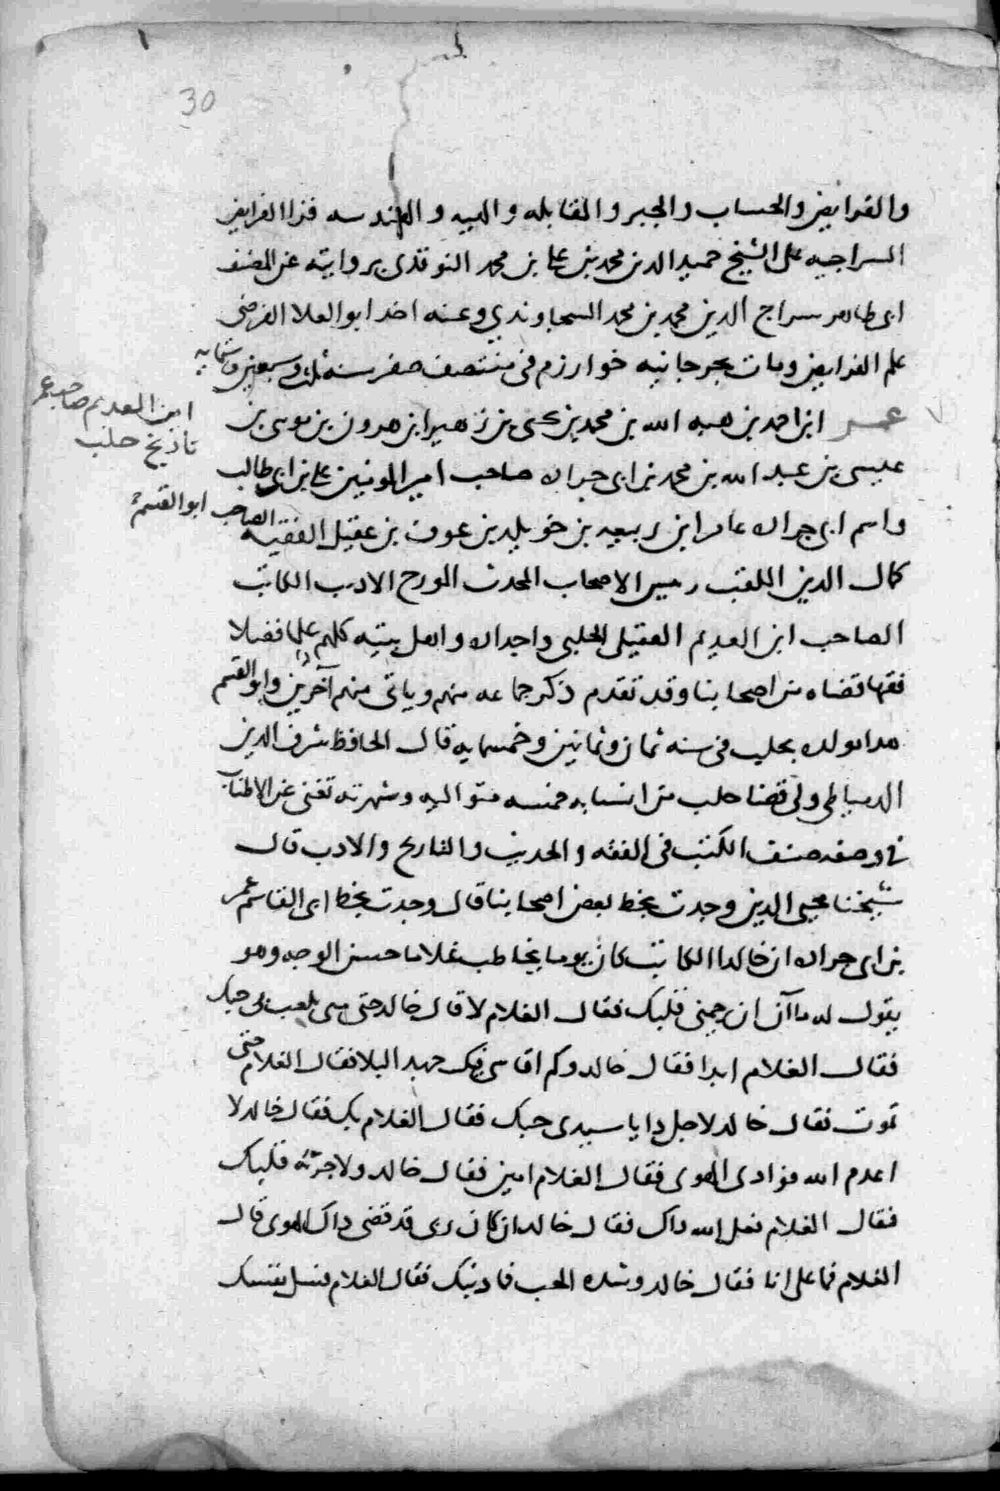 30
والفرايض والحساب والجبر والمقابله والهييه والهندسه قرا الفرايض
السراجيه على الشيخ حميد الدين محمد بن على بن محمد النوقدى بروايته عن المصنف
ابى طاهر سراج الدين محمد بن محمد السجاوندي وعنه اخد ابو العلا الفرضى
علم الفرايض ومات بجرجانيه خوارزم فى منتصف صفر سنه ثلث وسبعين وستمايه
عمر ابن احمد بن هبه الله بن محمد بن يحيى بن زهير ابن هرون بن موسى بن
ابن العديم صاحب عمر
تاريخ حلب
عيسى بن عبد الله بن محمد بن ابى جراده صاحب امير المومنين على بن ابى طالب
واسم ابى جراده عامر ابن ربيعه بن خويلد بن عوف بن عقيل الفقيه الصاحب ابو القسم
كمال الدين الملقب رييس الاصحاب المحدث المورح الاديب الكاتب
الصاحب ابن العديم العقيلى الحلبى واجداده واهل بيته كلهم علما فضلا
فقها قضاه من اصحابنا وقد تقدم ذكر جماعه منهم وياتى منهم آخرين وابو القسم
هدا مولده بحلب فى سنه ثمان وثمانين وخمسمايه قال الحافظ شرف الدين
الدمياطى ولى قضا حلب من انسابه خمسه متواليه وشهرته تغنى عن الاطناب
فى وصفه صنف الكتب فى الفقه والحديث والتاريح والادب قال
شيخنا محيى الدين وجدت بخط بعض اصحابنا قال وجدت بخط ابى القاسم عمر
بن ابى جراده ان خالدا الكاتب كان يوما يخاطب غلاما حسن الوجه وهو
يقول له ماآن ان يرحمنى قلبك فقال الغلام لا قال خالد حتى متى يلعب بى حبك
فقال الغلام ابدا فقال خالد وكم اقاسى فيك جهد البلا فقال الغلام حتى
تموت فقال خالد لاجل دا يا سيدى حبك فقال الغلام بك فقال خالد لا
اعدم الله فؤادى الهوى فقال الغلام امين فقال خالد ولا جرته قلبك
فقال الغلام فعل الله داك فقال خالد ان كان ربى قد قضى داك الهوى قال
الغلام فما على انا فقال خالد وشده الحب فما دنبك فقال الغلام فسل نفسك